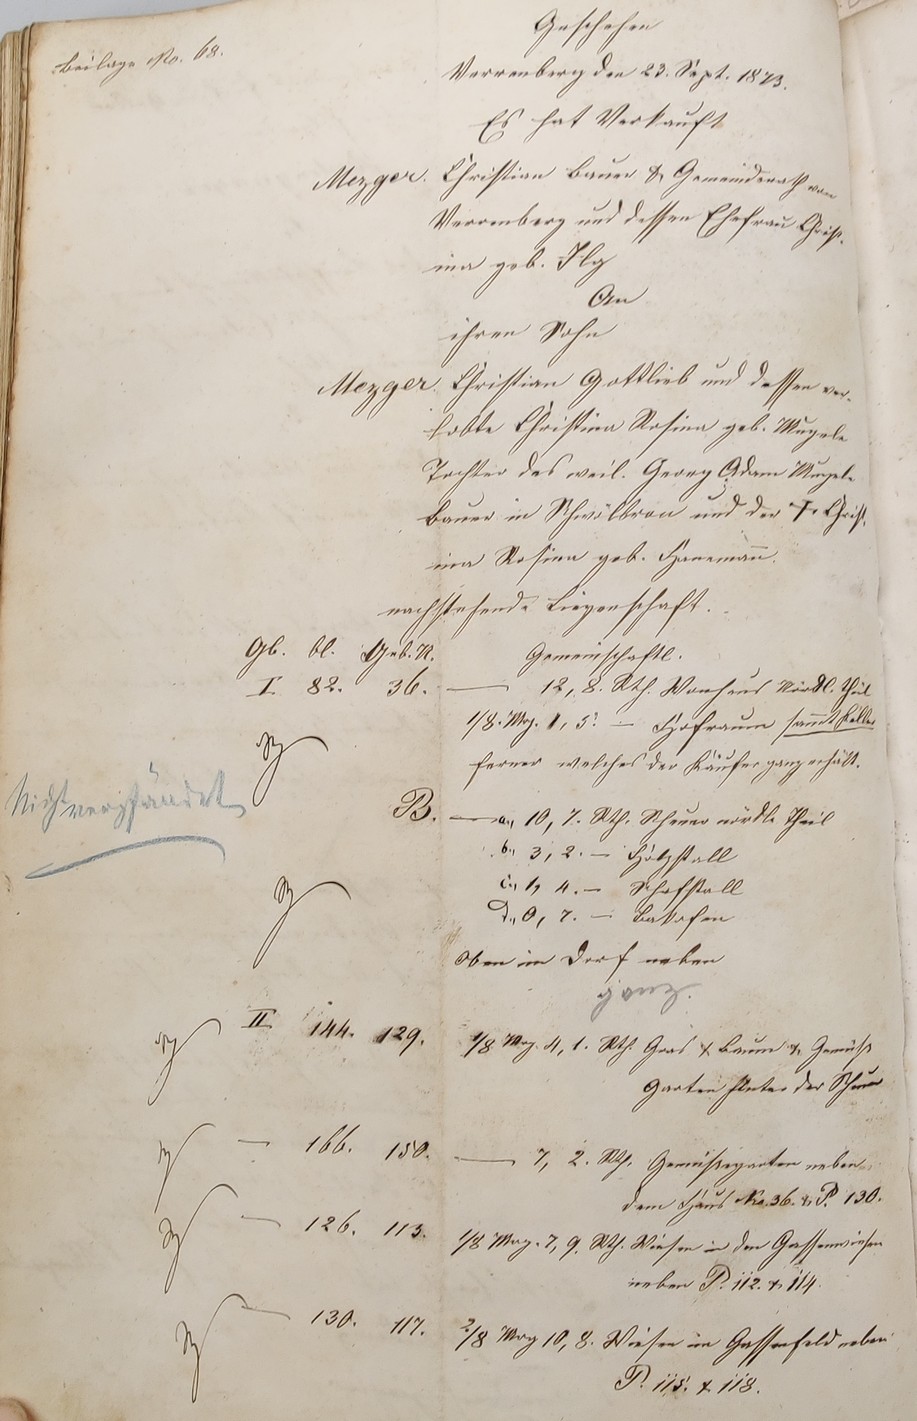 Beilage No. 68.
Geschehen
Verrenberg den 23. Sept. 1873.
Es hat Verkauft
Mezger. Christian Bauer & Gemeinderath von
Verrenberg und dessen Ehefrau Christ-
ina geb. Ilg
An
ihren Sohn
Mezger Christian Gottlieb und dessen ver-
lobte Christina Rosina geb. Mugele
Tochter des weil. Georg Adam Mugele
Bauer in Schwöllbron und der † Christ-
ina Rosina geb. Hanemann.
nachstehende Liegenschaft.
Gb. bl. Geb. N. Gemeinschaftl.
I. 82. 36. — 12, 8. Rth. Wonhaus Nördl. Theil
1/8. Mrg. 1, 5. — Hofraum sammt Keller
ferner welches der Käufer ganz erhält.
Nicht verpfändet
B. — a., 10, 7. Rth. Scheuer nördl. Theil
b., 3, 2. — Holzstall
c., 1, 4. — Schafstall
d., 0, 7. — Bakofen
oben im Dorf neben
ganz.
II 144. 129. 1/8 Mrg. 4, 1. Rth. Gras & Baum & Gemüse
Garten hinter der Scheuer
— 166. 150. — 7, 2. Rth. Gemüsegarten neben
dem Haus No. 36. & P. 130.
— 126. 113. 1/8 Mrg. 7, 9. Rth. Wiesen in den Gassenwiesen
neben P. 112. & 114.
— 130. 117. 2/8 Mrg 10, 8. Wiesen im Gassenfeld neben
P. 115. & 118.